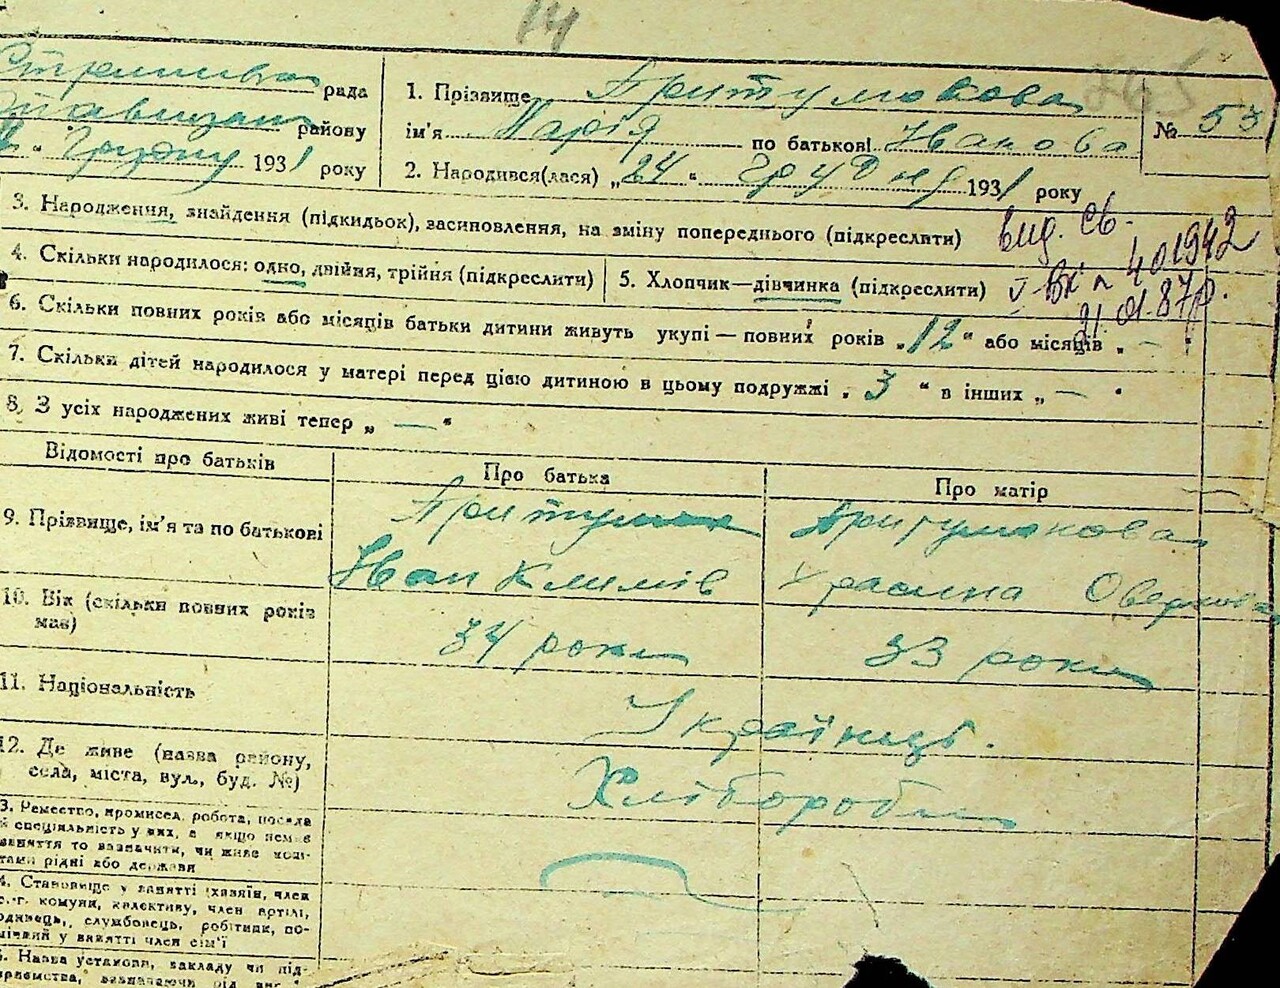 14
265
рада
району
" Грудну 1931 року
1. Прізвище Притулюкова
ім'я Марія по батькові Иванова
№ 53
2. Народився(лася) „24" грудня 1931 року
3. Народження, знайдення (підкидьок), засиновлення, на зміну попереднього (підкреслити)
вид. св.
V-ВК № 401942
21.01.87р.
4. Скільки народилося: одно, двійня, трійня (підкреслити)
5. Хлопчик—дівчинка (підкреслити)
6. Скільки повних років або місяців батьки дитини живуть укупі — повних років „12" або місяців „—"
7. Скільки дітей народилося у матері перед цією дитиною в цьому подружжі „3" в інших „—"
8. З усіх народжених живі тепер „—"
Відомості про батьків
Про батька
Про матір
9. Прізвище, ім'я та по батькові
Притулюк
Иван Климів
Притулюкова
10. Вік (скільки повних років має)
34 роки
33 роки
11. Національність
Українці.
12. Де живе (назва району, села, міста, вул., буд. №)
Хлібороби
3. Ремество, промисел, робота, посада
й спеціальність у них, а якщо нема
заняття то вазначити, чи живе кош-
тами рідні або держави
4. Становище у занятті (хазяїн, член
с.-г. комуни, колективу, член артілі,
одинець, службовець, робітник, по-
мічний у занятті член сім'ї
5. Назва установи, закладу чи під-
приємства, вазначаючи рід